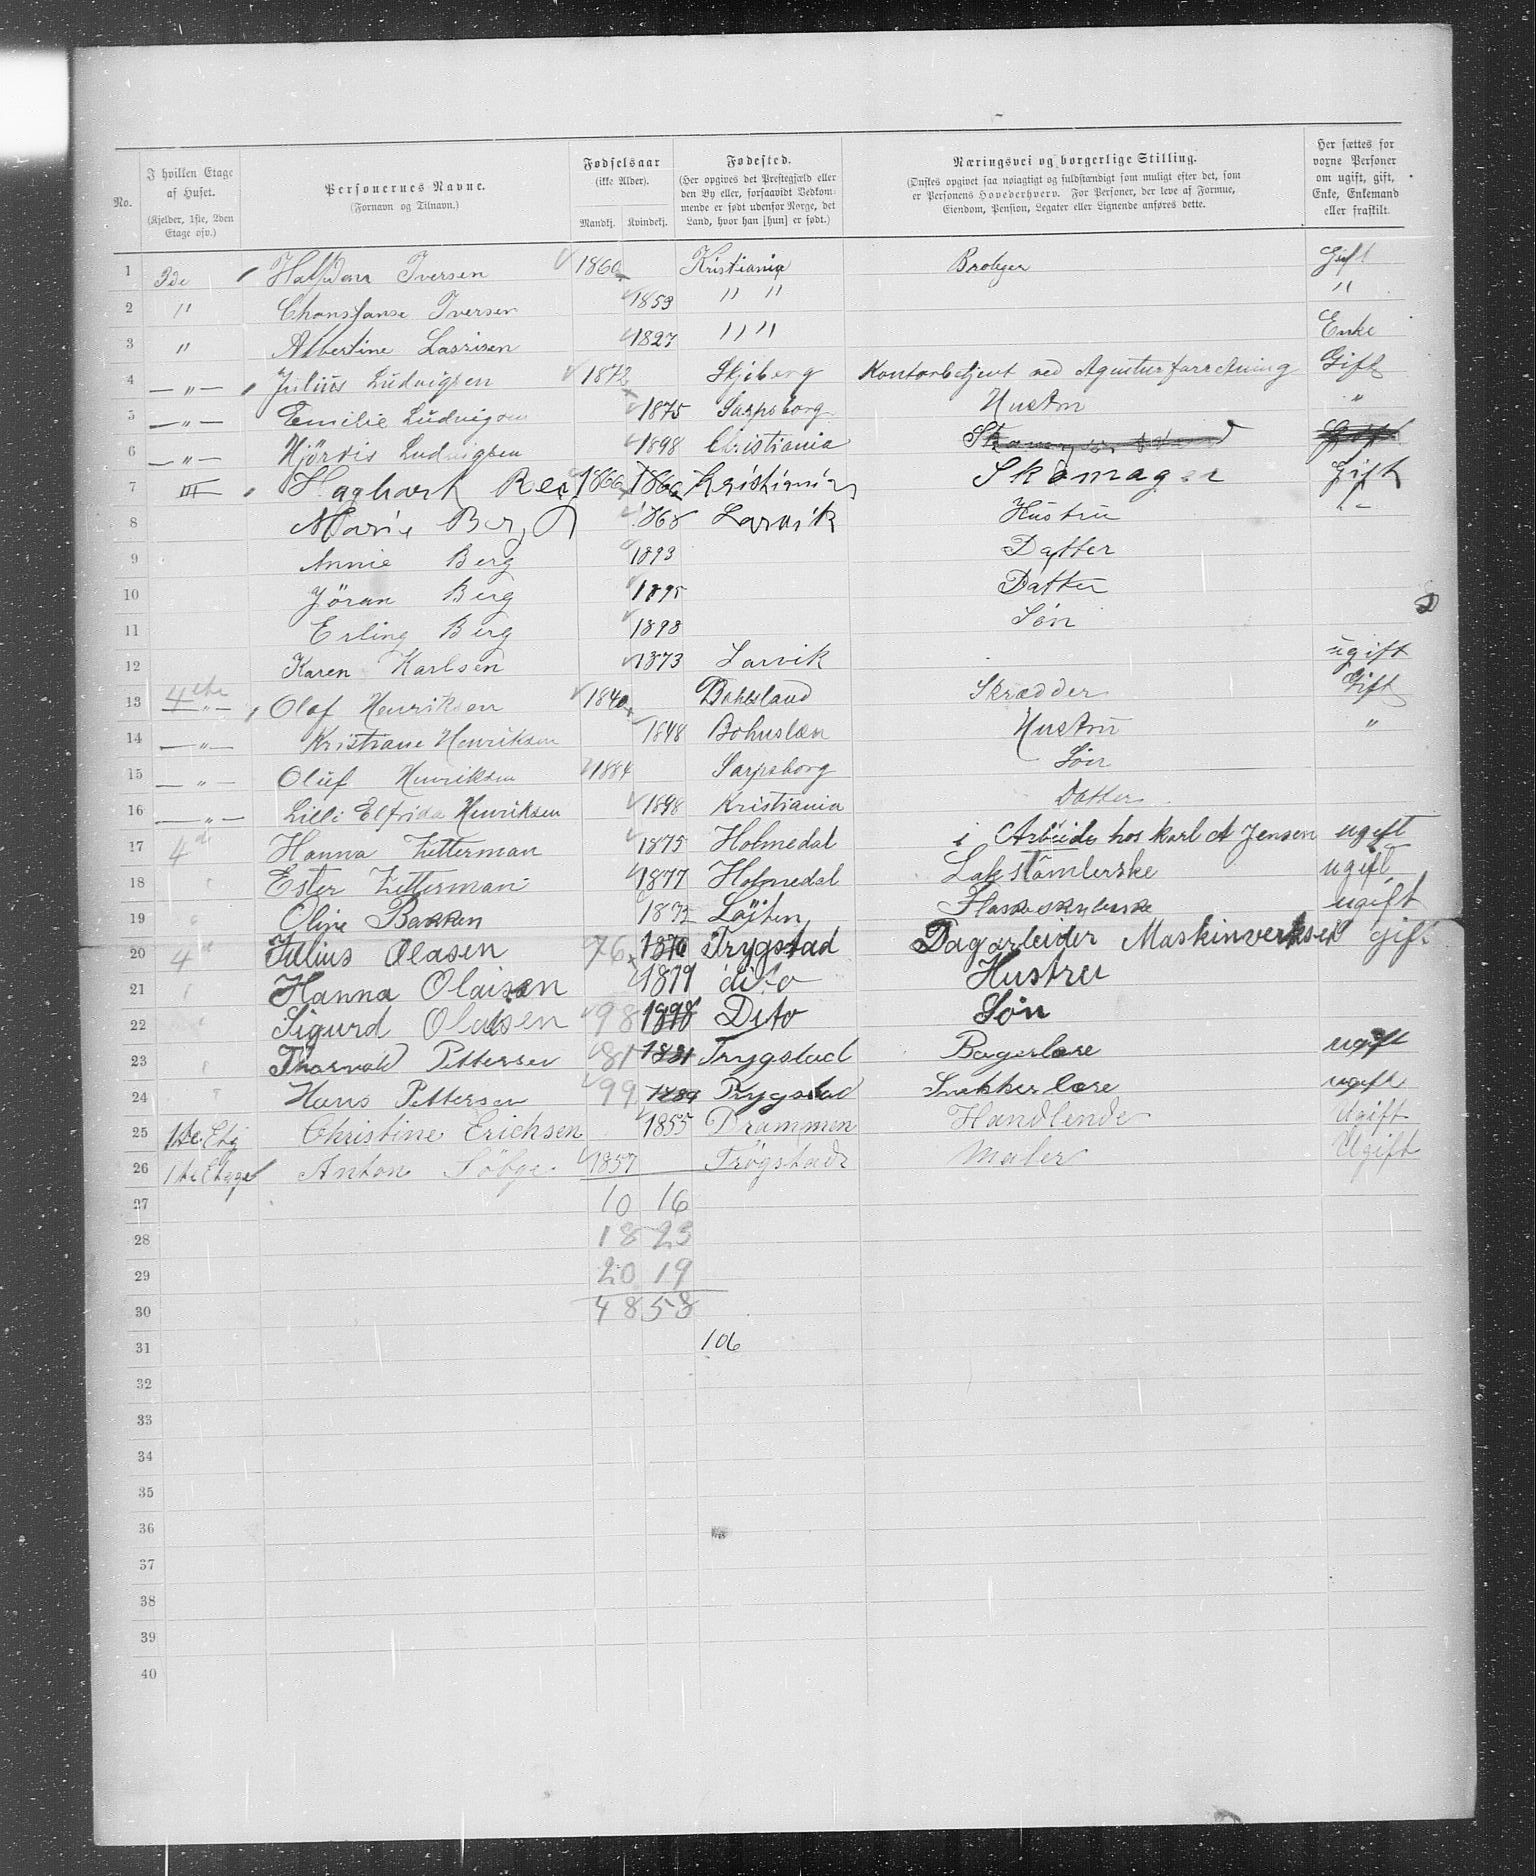 No. I hvilken Etage af Huset. (Kjelder, 1ste, 2den Etage osv.) Personernes Navne. (Fornavn og Tilnavn.) Fødselsaar (ikke Alder). Mandkj. Kvindekj. Fødested. (Her opgives det Prestegjæld eller den By eller, forsaavidt Vedkommende er født udenfor Norge, det Land, hvor han [hun] er født.) Næringsvei og borgerlige Stilling. (Ønskes opgivet saa nøiagtigt og fuldstændigt som muligt efter det, som er Personens Hovederhverv. For Personer, der leve af Formue, Eiendom, Pension, Legater eller Lignende anføres dette. Her sættes for voxne Personer om ugift, gift, Enke, Enkemand eller fraskilt.
1 2de Halfdan Iversen 1860 Kristiania Gift
2 " Chonstanse Iversen 1853 " " "
3 " Albertine 1827 " " Enke
4 — " — Julius Ludvigsen 1872 Skjeberg Kontorbetjent ved Agenturforretning Gift
5 — " — Emilie Ludvigsen 1875 Sarpsborg Hustru "
6 — " — Hjördis Ludvigsen 1898 Christiania
7 III Haghart 1866 1866 Kristiania Skomager Gift
8 Marie Berg 1868 Larvik Hustru
9 Annie Berg 1893 Datter
10 Jöran Berg 1895 Datter
11 Erling Berg 1898 Søn
12 Karen Karlsen 1873 Larvik ugift
13 4de — " — Olaf Henriksen 1840 Skrædder Gift
14 — " — Kristiane Henriksen 1848 Bohuslæn Hustru "
15 — " — Oluf Henriksen 1884 Sarpsborg Søn
16 — " — Lilli Elfrida Henriksen 1898 Kristiania Datter
17 4de Hanna Zetterman 1875 Holmedal i Arbeide hos Karl A Jensen ugift
18 " Ester Zetterman 1877 Holmedal ugift
19 " Oline Bakken 1872 Løiten Flaskeskylerske ugift
20 4de Julius Olasen 76 1876 Trygstad Dagarbeider Maskinverksed gift
21 " Hanna Olaisen 1879 dito Hustru
22 " Sigurd Olaisen 98 1898 Dito Søn
23 " Thorvald Pettersen 81 1881 Trygstad Bagerlære ugift
24 " Hans Pettersen 99 1884 Trygstad Snekkerlære ugift
25 1ste Etg Christine Erichsen 1855 Drammen Handlende Ugift
26 1ste Etage Anton 1857 Trögstad Maler Ugift
27 10 16
28 18 23
29 20 19
30 48 58
31 106
32
33
34
35
36
37
38
39
40